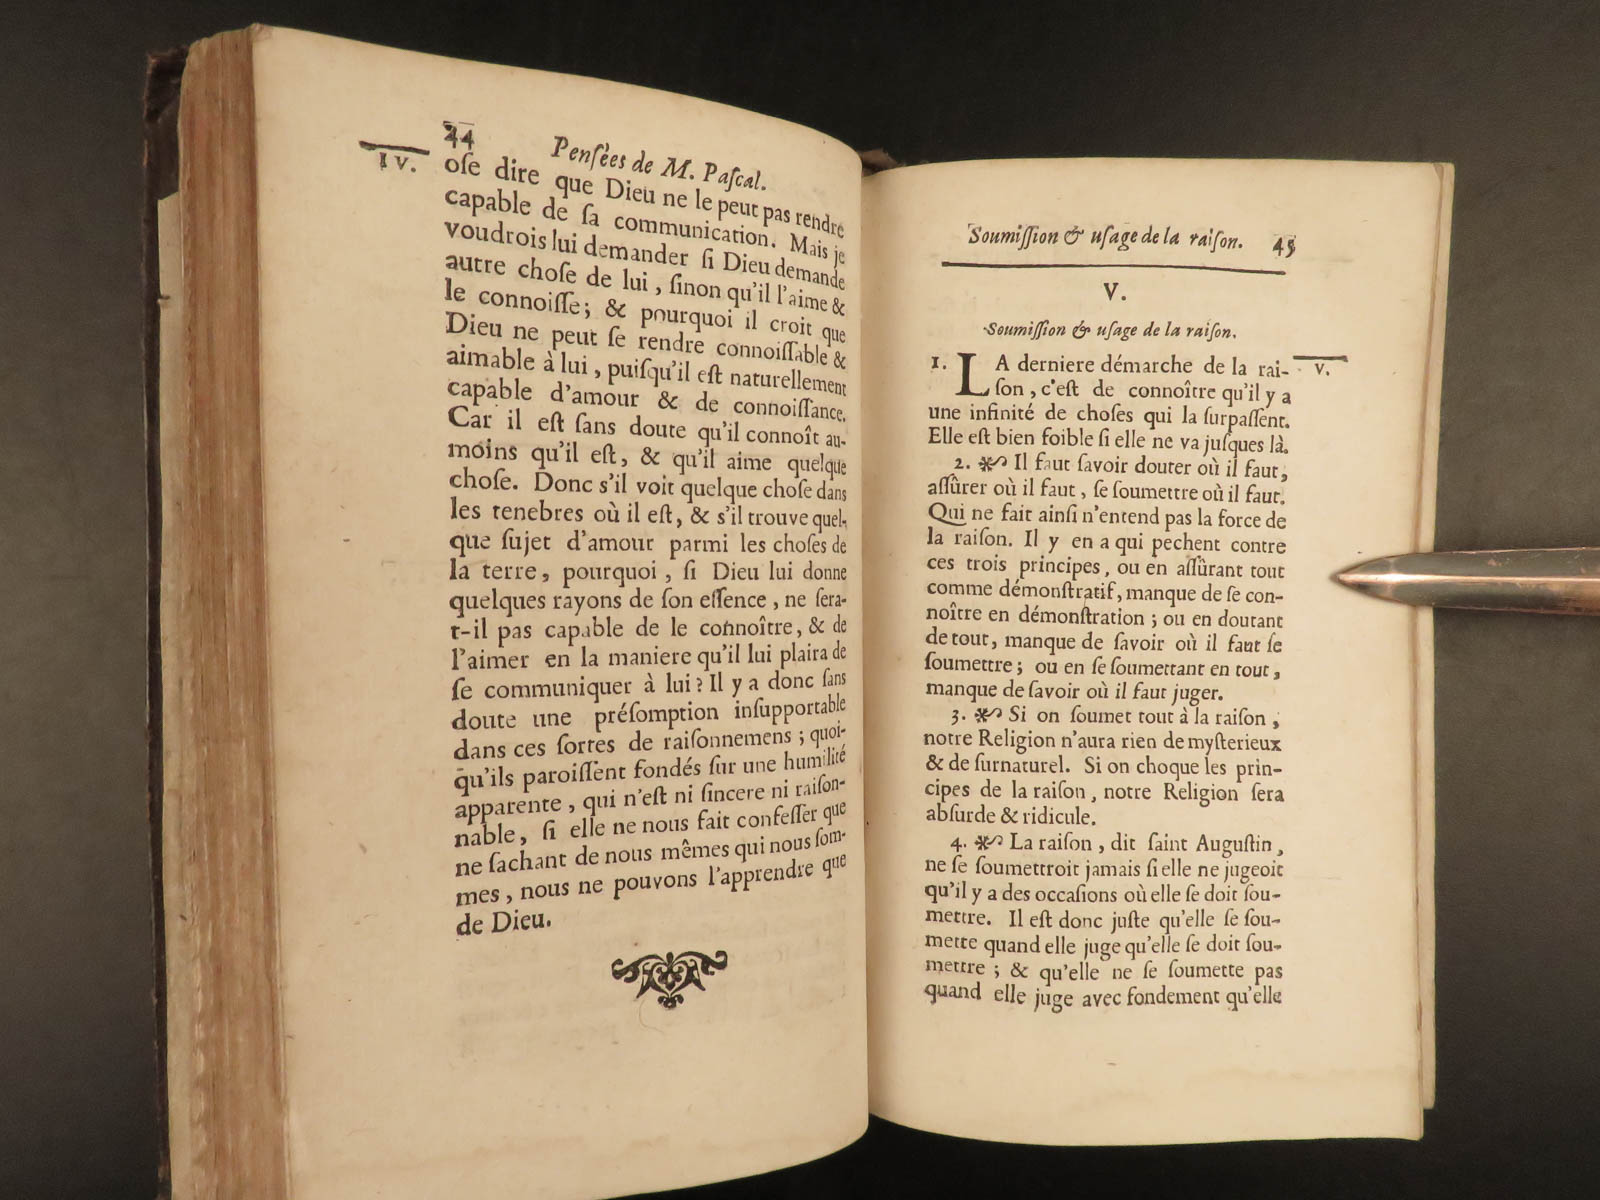 44 Penſées de M. Paſcal.
IV.
oſe dire que Dieu ne le peut pas rendre
capable de ſa communication. Mais je
voudrois lui demander ſi Dieu demande
autre choſe de lui, ſinon qu'il l'aime &
le connoiſſe; & pourquoi il croit que
Dieu ne peut ſe rendre connoiſſable &
aimable à lui, puiſqu'il eſt naturellement
capable d'amour & de connoiſſance.
Car il eſt ſans doute qu'il connoît au-
moins qu'il eſt, & qu'il aime quelque
choſe. Donc s'il voit quelque choſe dans
les tenebres où il eſt, & s'il trouve quel-
que ſujet d'amour parmi les choſes de
la terre, pourquoi, ſi Dieu lui donne
quelques rayons de ſon eſſence, ne ſera-
t-il pas capable de le connoître, & de
l'aimer en la maniere qu'il lui plaira de
ſe communiquer à lui? Il y a donc ſans
doute une préſomption inſupportable
dans ces ſortes de raiſonnemens; quoi-
qu'ils paroiſſent fondés ſur une humilité
apparente, qui n'eſt ni ſincere ni raiſon-
nable, ſi elle ne nous fait confeſſer que
ne ſachant de nous mêmes qui nous ſom-
mes, nous ne pouvons l'apprendre que
de Dieu.
Soumiſſion & uſage de la raiſon. 45
V.
Soumiſſion & uſage de la raiſon.
1. LA derniere démarche de la rai- V.
ſon, c'eſt de connoître qu'il y a
une infinité de choſes qui la ſurpaſſent.
Elle eſt bien foible ſi elle ne va juſques là.
2. Il faut ſavoir douter où il faut,
aſſûrer où il faut, ſe ſoumettre où il faut.
Qui ne fait ainſi n'entend pas la force de
la raiſon. Il y en a qui pechent contre
ces trois principes, ou en aſſûrant tout
comme démonſtratif, manque de ſe con-
noître en démonſtration; ou en doutant
de tout, manque de ſavoir où il faut ſe
ſoumettre; ou en ſe ſoumettant en tout,
manque de ſavoir où il faut juger.
3. Si on ſoumet tout à la raiſon,
notre Religion n'aura rien de myſterieux
& de ſurnaturel. Si on choque les prin-
cipes de la raiſon, notre Religion ſera
abſurde & ridicule.
4. La raiſon, dit ſaint Auguſtin,
ne ſe ſoumettroit jamais ſi elle ne jugeoit
qu'il y a des occaſions où elle ſe doit ſou-
mettre. Il eſt donc juſte qu'elle ſe ſou-
mette quand elle juge qu'elle ſe doit ſou-
mettre; & qu'elle ne ſe ſoumette pas
quand elle juge avec fondement qu'elle